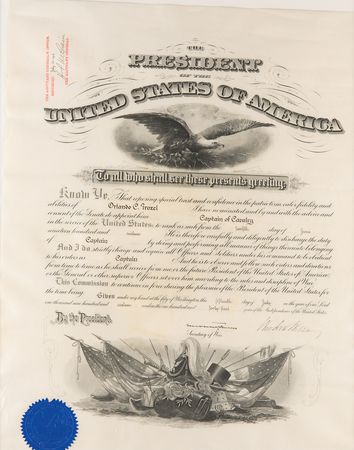 THE
PRESIDENT
OF THE
UNITED STATES OF AMERICA
To all who shall see these presents greeting:
Know Ye, That reposing special trust and confidence in the patriotism, valor, fidelity and
abilities of Orlando C. Troxel I have nominated and by and with the advice and
consent of the Senate do appoint him Captain of Cavalry
in the service of the United States: to rank as such from the day of June
nineteen hundred and He is therefore carefully and diligently to discharge the duty
of Captain by doing and performing all manner of things thereunto belonging.
And I do strictly charge and require all Officers and Soldiers under his command to be obedient
to his orders as Captain And he is to observe and follow such orders and directions
from time to time as he shall receive from me or the future President of the United States of America
or the General or other superior Officers set over him according to the rules and discipline of War.
This Commission to continue in force during the pleasure of the President of the United States for
the time being.
Given under my hand at the City of Washington this day of July in the year of our Lord
one thousand nine hundred and and of the Independence of the United States.
By the President:
Secretary of War.